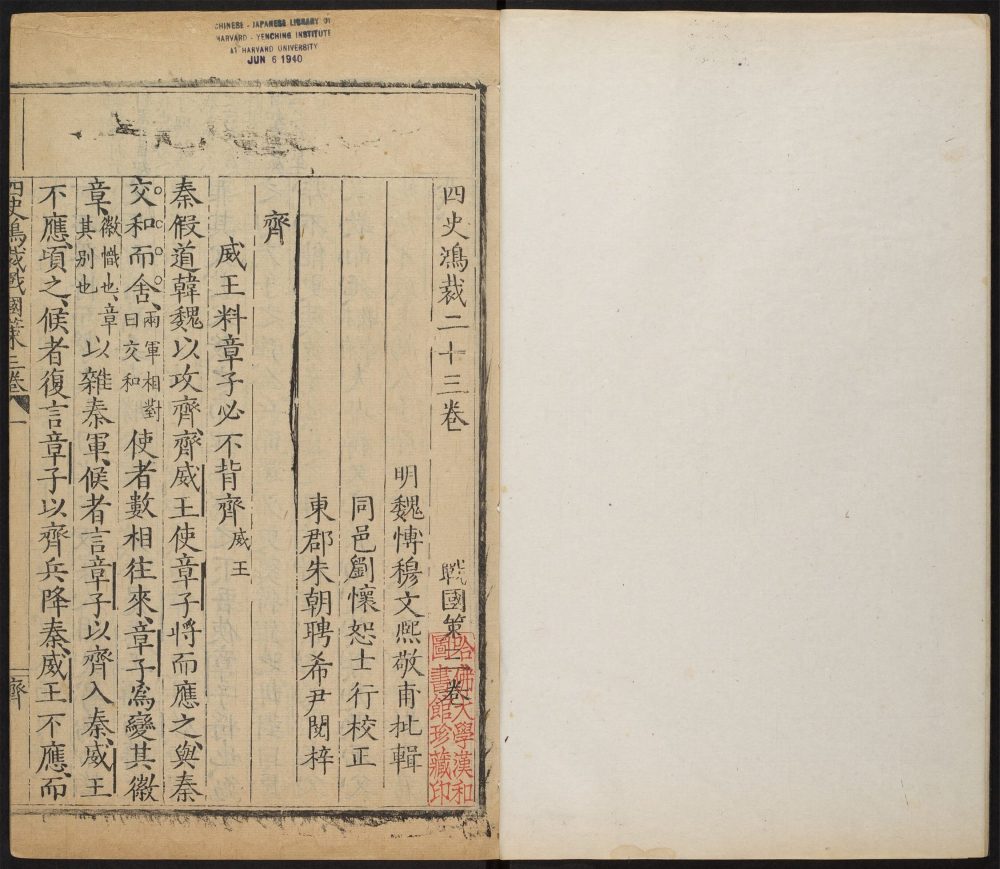 CHINESE - JAPANESE LIBRARY OF
HARVARD - YENCHING INSTITUTE
AT HARVARD UNIVERSITY
JUN 6 1940
四史鴻裁二十三卷 戰國策三卷
明魏博穆文熙敬甫批輯
同邑劉懷恕士行校正
東郡朱朝聘希尹閱梓
齊
威王料章子必不背齊威王
秦假道韓魏以攻齊齊威王使章子將而應之與秦
交和而舍兩軍相對曰交和使者數相往來章子爲變其徽
章徽幟也章其別也以雜秦軍候者言章子以齊入秦威王
不應頃之候者復言章子以齊兵降秦威王不應而
四史鴻裁戰國策三卷 一 齊
哈佛大學漢和
圖書館珍藏印